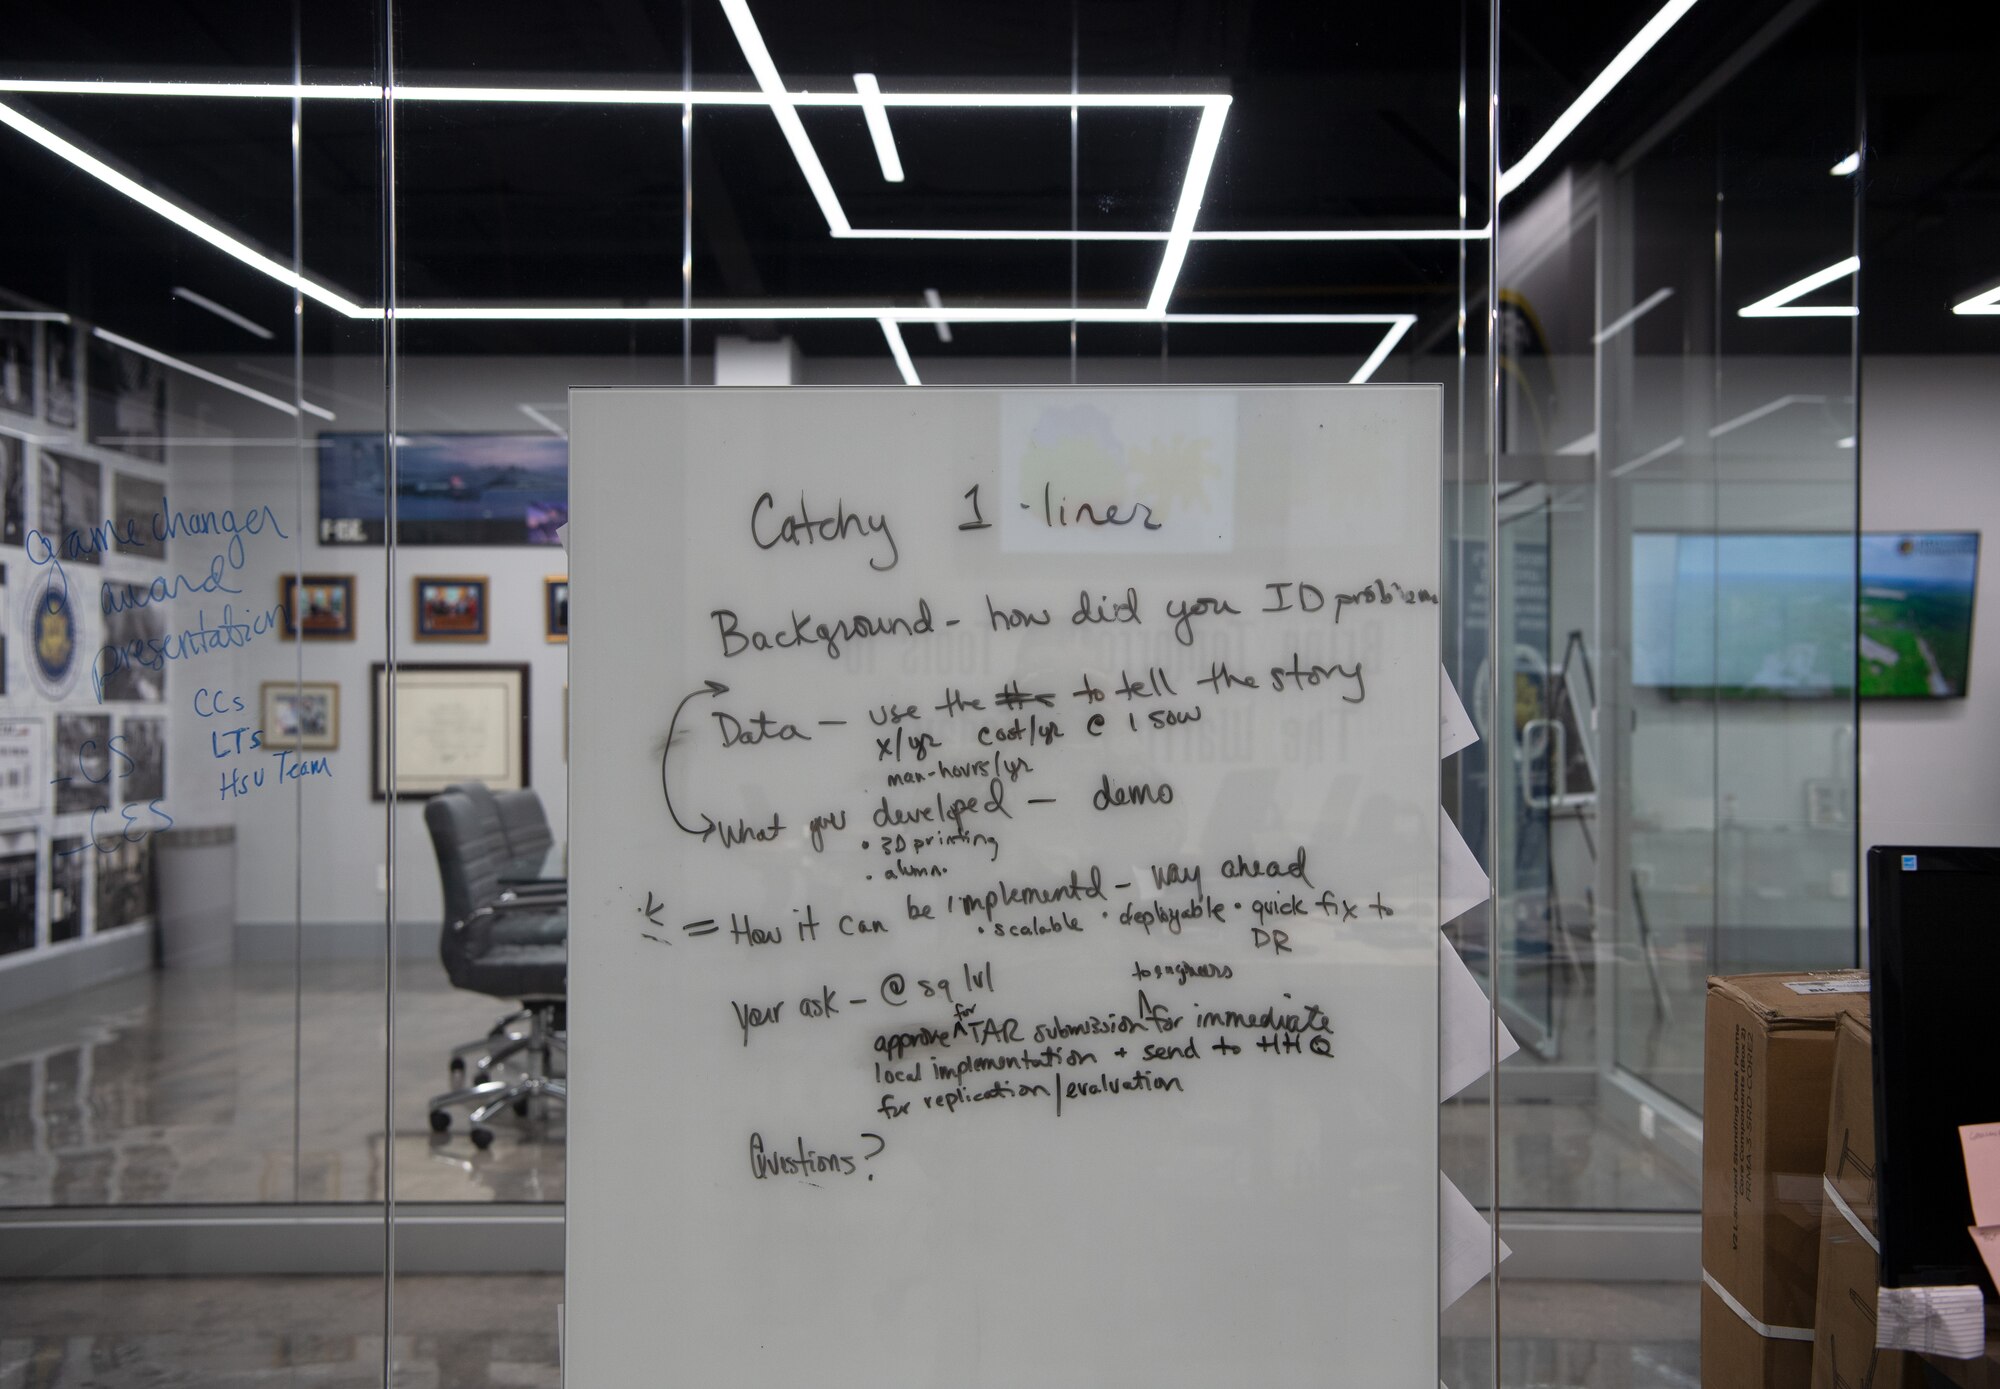 game changer
award
presentation
CCs
LTs
HSU Team
- CS
- CES
Catchy 1-liner
Background - how did you ID problem
Data - use the #s to tell the story
x/yr cost/yr @ 1 SOW
man-hours/yr
What you developed - demo
• 3D printing
• alumn.
= How it can be implementd - way ahead
• scalable • deployable • quick fix to
DR
Your ask - @ sq lvl
to engineers
for
approve ^ TAR submission ^ for immediate
local implementation + send to HHQ
for replication/evaluation
Questions?
V2 L shaped Standing Desk Frame
Core Components (Box 2)